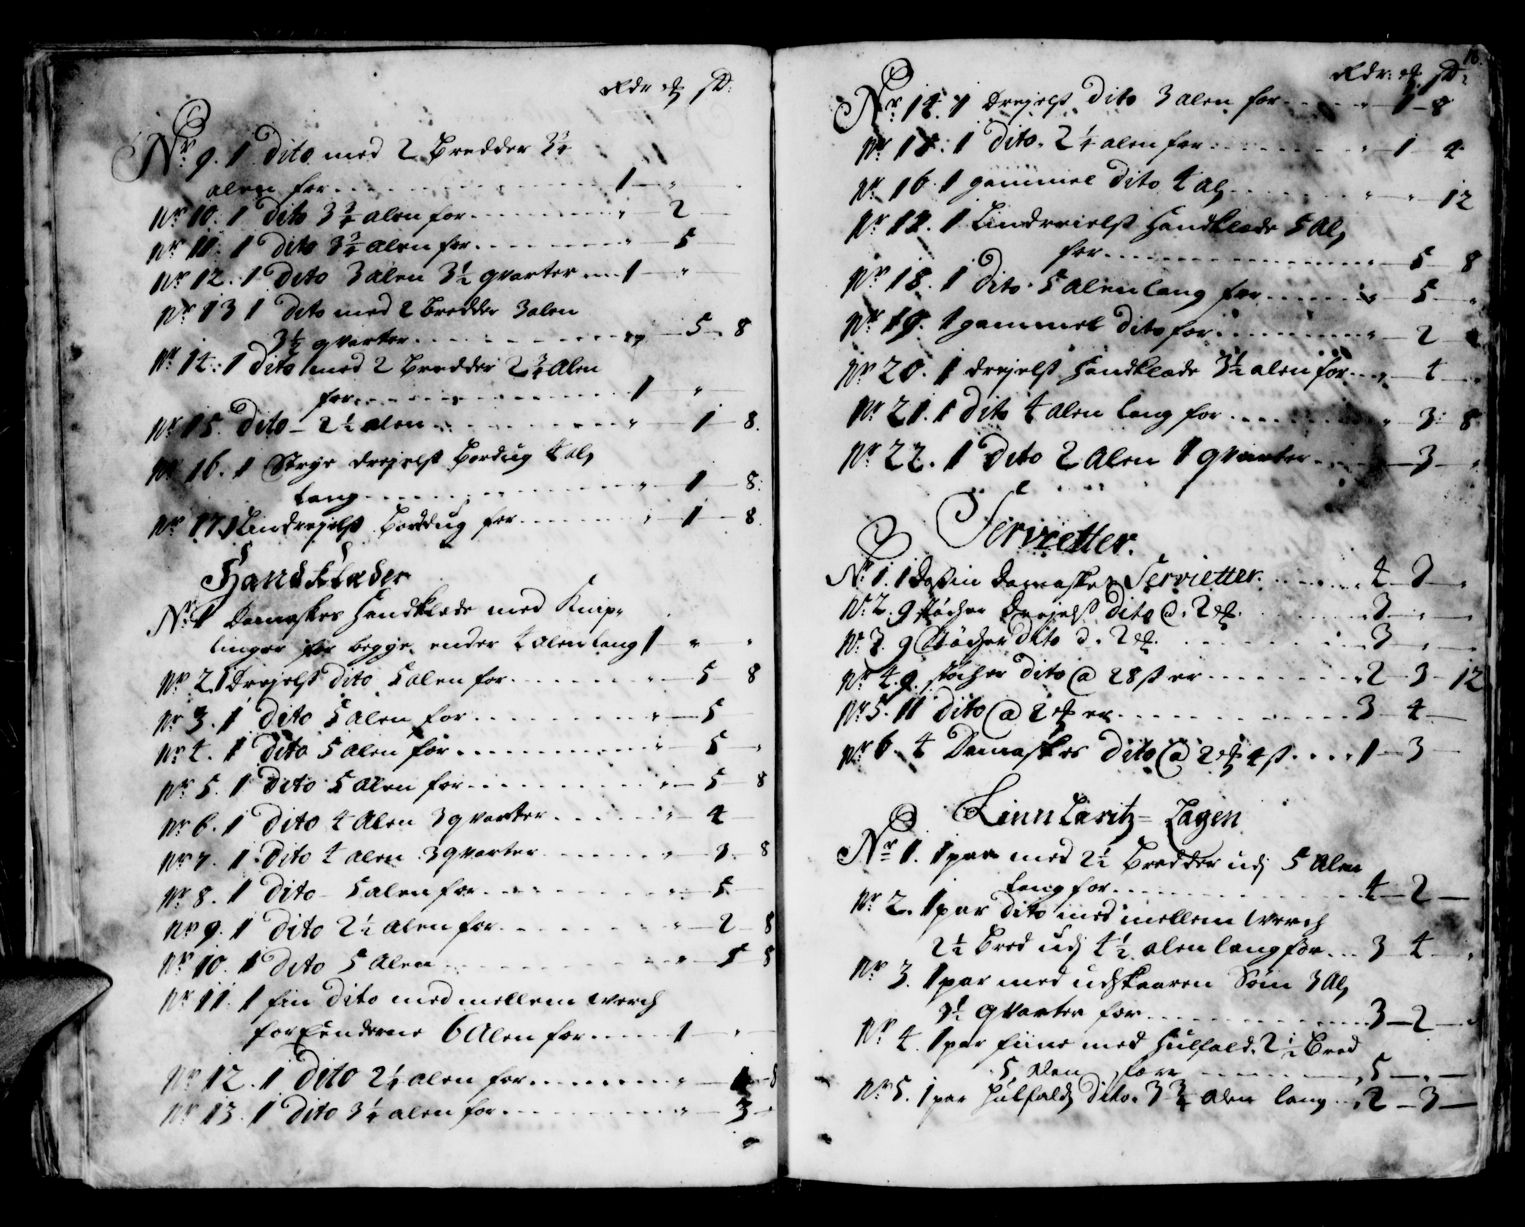 Rdr. ʒ s:
Nr 9. 1 Dito med 2 Bredder 3¼
alen for . . . 1 — " —
Nr 10. 1 Dito 3¾ alen for . . . " — 2 —
Nr 11. 1 Dito 3¾ alen for . . . " — 5 —
Nr 12. 1 Dito 3 alen 3½ qvarter . . . 1 — "
Nr 13 1 Dito med 2 Bredder 3 alen
3½ qvarter . . . " — 5 — 8
Nr 14. 1 Dito med 2 Bredder 2¾ Alen
for . . . 1 — "
Nr 15. Dito — 2½ alen . . . " — 1 — 8.
Nr 16. 1 Strye dreyels Bordug 4 al,
lang . . . " — 1 — 8:
Nr 17. 1 Lindreyels Bordug for . . . " — 1 — 8
Handklæder
Nr 1 Damaskes Handklæde med Knip-
linger for begge ender 4 alen lang 1 — " — "
Nr 2. 1 Dreyels dito 5 alen for . . . " — 5 — 8
Nr 3. 1 Dito 5 alen for . . . " — 5 —
Nr 4. 1 Dito 5 alen for . . . " — 5 — "
Nr 5. 1 Dito 5 alen for . . . " — 5 — 8
Nr 6. 1 Dito 4 Alen 3 qvarter . . . " — 4 —
Nr 7. 1 Dito 4 alen 3 qvarter . . . " — 3 — 8
Nr 8. 1 Dito — 5 alen for . . . " — 5 —
Nr 9. 1 Dito 2½ alen for . . . " — 2 — 8
Nr 10. 1 Dito 5 Alen . . . " — 5 8
Nr 11. 1 fin Dito med mellem werch
for Enderne 6 Alen for . . . 1 — "
Nr 12. 1 Dito 2½ alen for . . . " — 1 — 8
Nr 13. 1 Dito 3¼ alen for . . . " — 3 —
16.
Rdr: ʒ s:
Nr 14. 1 Dreyels Dito 3 alen for . . . " — 1 — 8
Nr 15. 1 Dito. 2¼ alen for . . . " — 1 — 4
Nr 16. 1 gammel Dito 4 al, . . . " — " — 12
Nr 17. 1 Lindreiels Handklæde 5 Al,
for . . . " — 5 — 8
Nr 18. 1 Dito. 5 alen lang for . . . " — 5 — "
Nr 19. 1 gammel dito for . . . " — 2 — "
Nr 20. 1 dreyels Handklæde 3½ alen for . . . " — 4 — "
Nr 21. 1 Dito 4 alen lang for . . . " — 3: 8
Nr 22. 1 Dito 2 Alen 1 qvarter . . . — 3 — "
Servietter.
Nr 1. 1 Dosin Damaskes Servietter. . . . 4 — 3 — "
Nr 2. 9 støcher Dreyels Dito @. 2 ʒ. . . . 3 — " —
Nr 3. 9 Støcher Dito @. 2 ʒ. . . . 3 — " —
Nr 4. 9 støcher Dito @ 28 s er . . . 2 — 3 — 12
Nr 5. 11 Dito @ 2 ʒ er . . . 3 — 4 —
Nr 6. 4 Damaskes Dito @ 2 ʒ 4 s . . . 1 — 3 —
Linn Laritz = Lagen
Nr 1. 1 par med 2½ Bredder udj 5 Alen
lang for . . . 4 — 2 —
Nr 2. 1 par dito med mellem werch
2½ Bred udj 4½ alen lang for . . . 3 — 4 — "
Nr 3. 1 par med udskaaren Søm 3 Al,
3½ qvarter for . . . 3 — 2 — "
Nr 4. 1 par fiine med Hulfald. 2½ Bred
5 alen for . . . " 5 — " —
Nr 5. 1 par Hulfalds Dito. 3¾ alen lang . . . 2 — 3 —